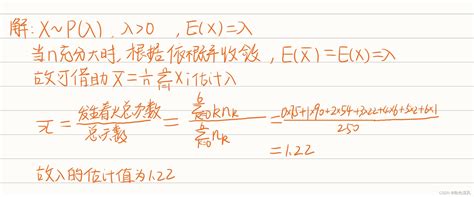 解:X~P(λ),λ>0 ,E(X)=λ
当n充分大时,根据依概率收敛,E(X̄)=E(X)=λ
故可借助 X̄=1/n ΣXi 估计λ
x̄ = 发生着火总次数/总天数 = Σ(k=0→6) k nk / Σ(k=0→6) nk = 0×75+1×90+2×54+3×22+4×6+5×2+6×1 / 250
=1.22
故λ的估计值为1.22